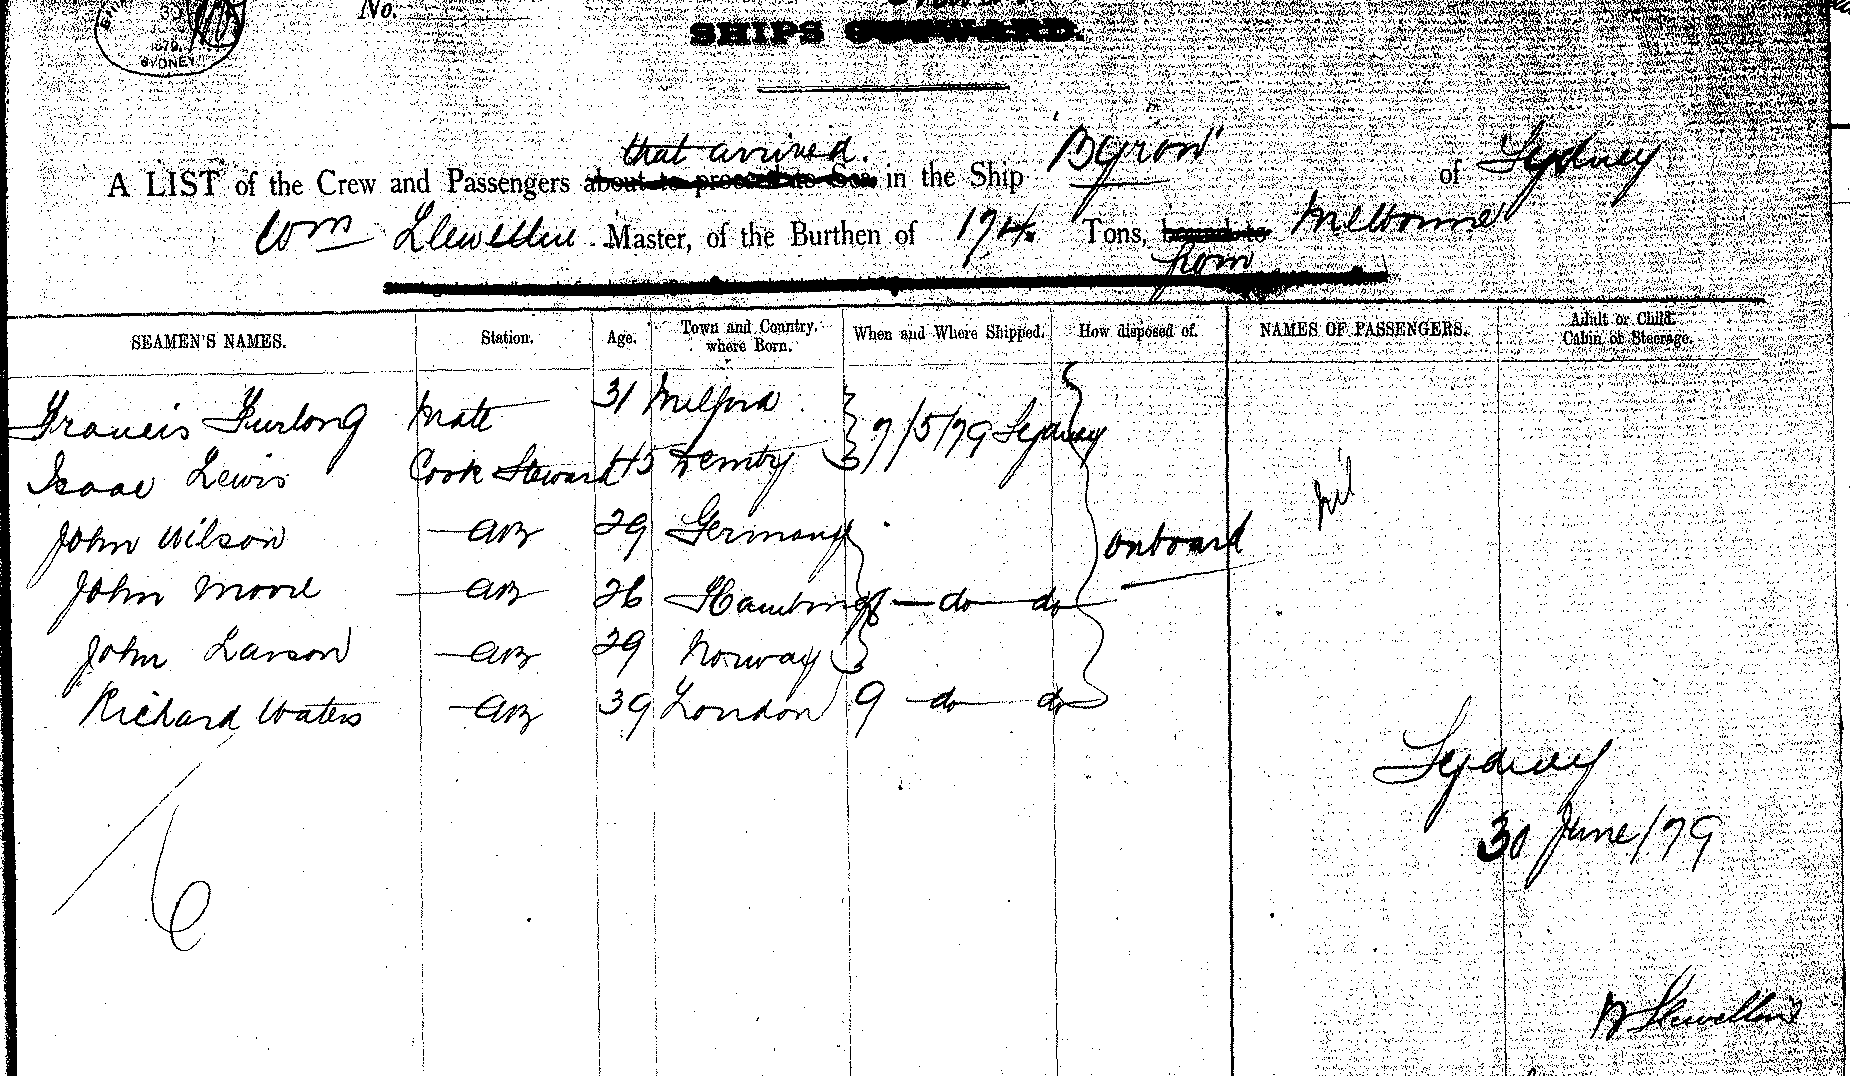 No.
SHIPS OUTWARD.
1879.
SYDNEY
that arrived.
A LIST of the Crew and Passengers about to proceed to Sea in the Ship "Byron" of Sydney
Wm Llewellin Master, of the Burthen of 174 Tons, bound to Melbourne
from
SEAMEN'S NAMES. Station. Age. Town and Country, where Born. When and Where Shipped. How disposed of. NAMES OF PASSENGERS. Adult or Child. Cabin or Steerage.
Francis Furlong Mate 31 Milford 7/5/79 Sydney
Isaac Lewis Cook Steward 45 Tenby
nil
John Wilson AB 29 Germany onboard
John Moore AB 26 Hamburg 8 do do
John Larson AB 29 Norway
Richard Waters AB 39 London 9 do do
Sydney
30 June/79
6
W Llewellin